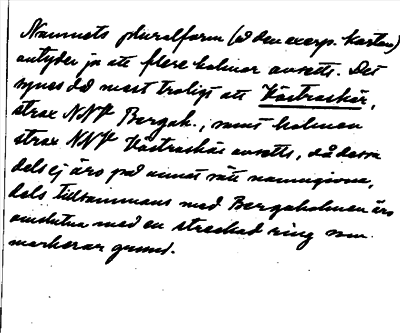 Namnets pluralform (å den excerp. kartan)
antyder ju att flere holmar avsetts. Det
synes då mest troligt att Västraskär,
strax NNV Bergsh., samt holmen
strax NNV Västraskär avsetts, då dessa
dels ej äro på annat sätt namngivna,
dels tillsammans med Bergsholmen äro
omslutna med en streckad ring som
markerar grund.